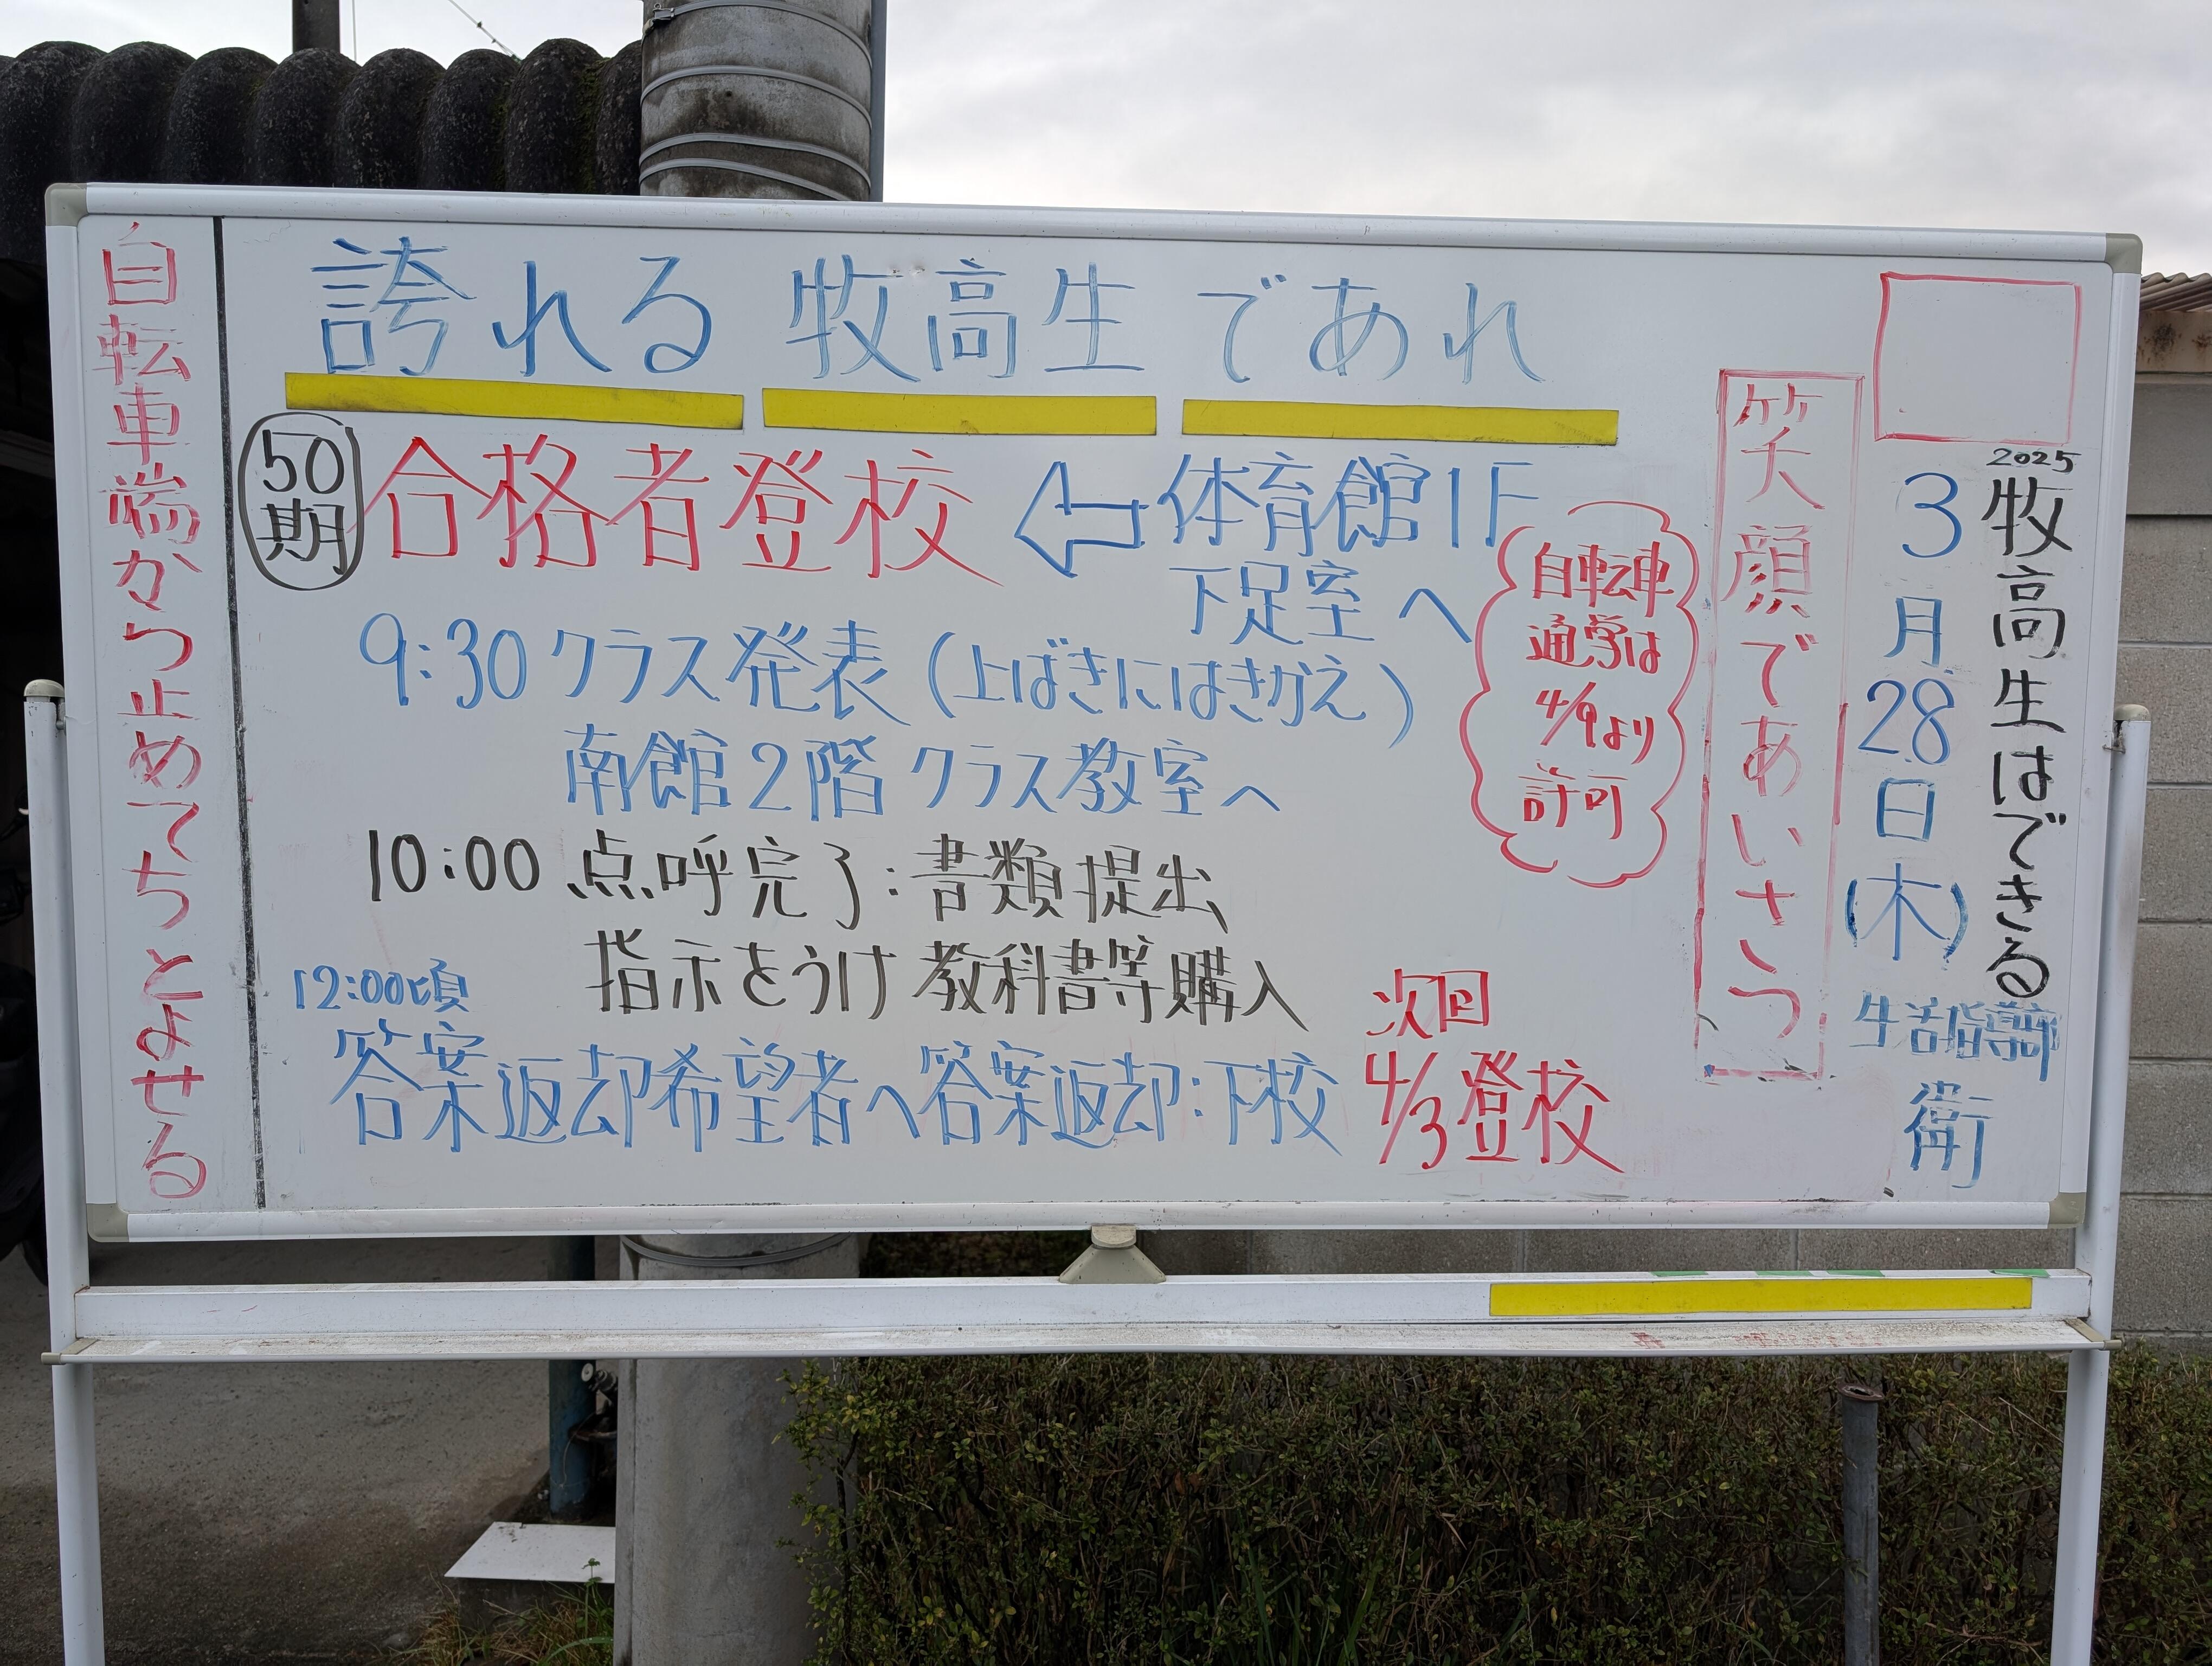 誇れる 牧高生 であれ
2025
牧高生はできる
3月28日(木)
生活指導部
衛
笑顔であいさつ
50期
合格者登校 ⇦ 体育館1F
下足室へ
自転車
通学は
4/9より
許可
9:30 クラス発表(上ばきにはきかえ)
南館2階 クラス教室へ
10:00 点呼完了:書類提出
指示をうけ 教科書等購入
12:00頃
答案返却希望者へ答案返却:下校
次回
4/3登校
自転車端から止めてちとよせる